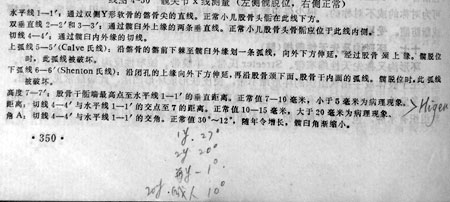 线图4-50 髋关节X线测量（左侧髋脱位，右侧正常）
水平线1—1′：通过双侧Y形软骨的髂骨尖的直线。正常小儿股骨头骺在此线下方。
双垂直线2—2′和3—3′：通过髋臼外上缘的两条垂直线。正常小儿股骨头骨骺应位于此线内侧。
切线4—4′：通过髋臼内外缘的切线。
上弧线5—5′（Calve氏线）：沿髂骨的髂前下棘至髋臼外缘划一条弧线，向外下方伸延，经过股骨颈上缘。髋脱位
时，此弧线被破坏。
下弧线6—6′（Shenton氏线）：沿闭孔的上缘向外下方伸延，再沿股骨颈下面、股骨干内面的弧线。髋脱位时，此弧线
被破坏。
高度7—7′：股骨干骺端最高点至水平线1—1′的垂直距离。正常值7—10毫米，小于5毫米为病理现象。
距离：切线4—4′与水平线1—1′的交点至7的距离。正常值10—15毫米，大于20毫米为病理现象。
>Higen
角A：切线4—4′与水平线1—1′的交角。正常值30°～12°，随年令增长，髋臼角渐缩小。
·350·
1y. 27°
2y 20°
1°
20y 成人 10°